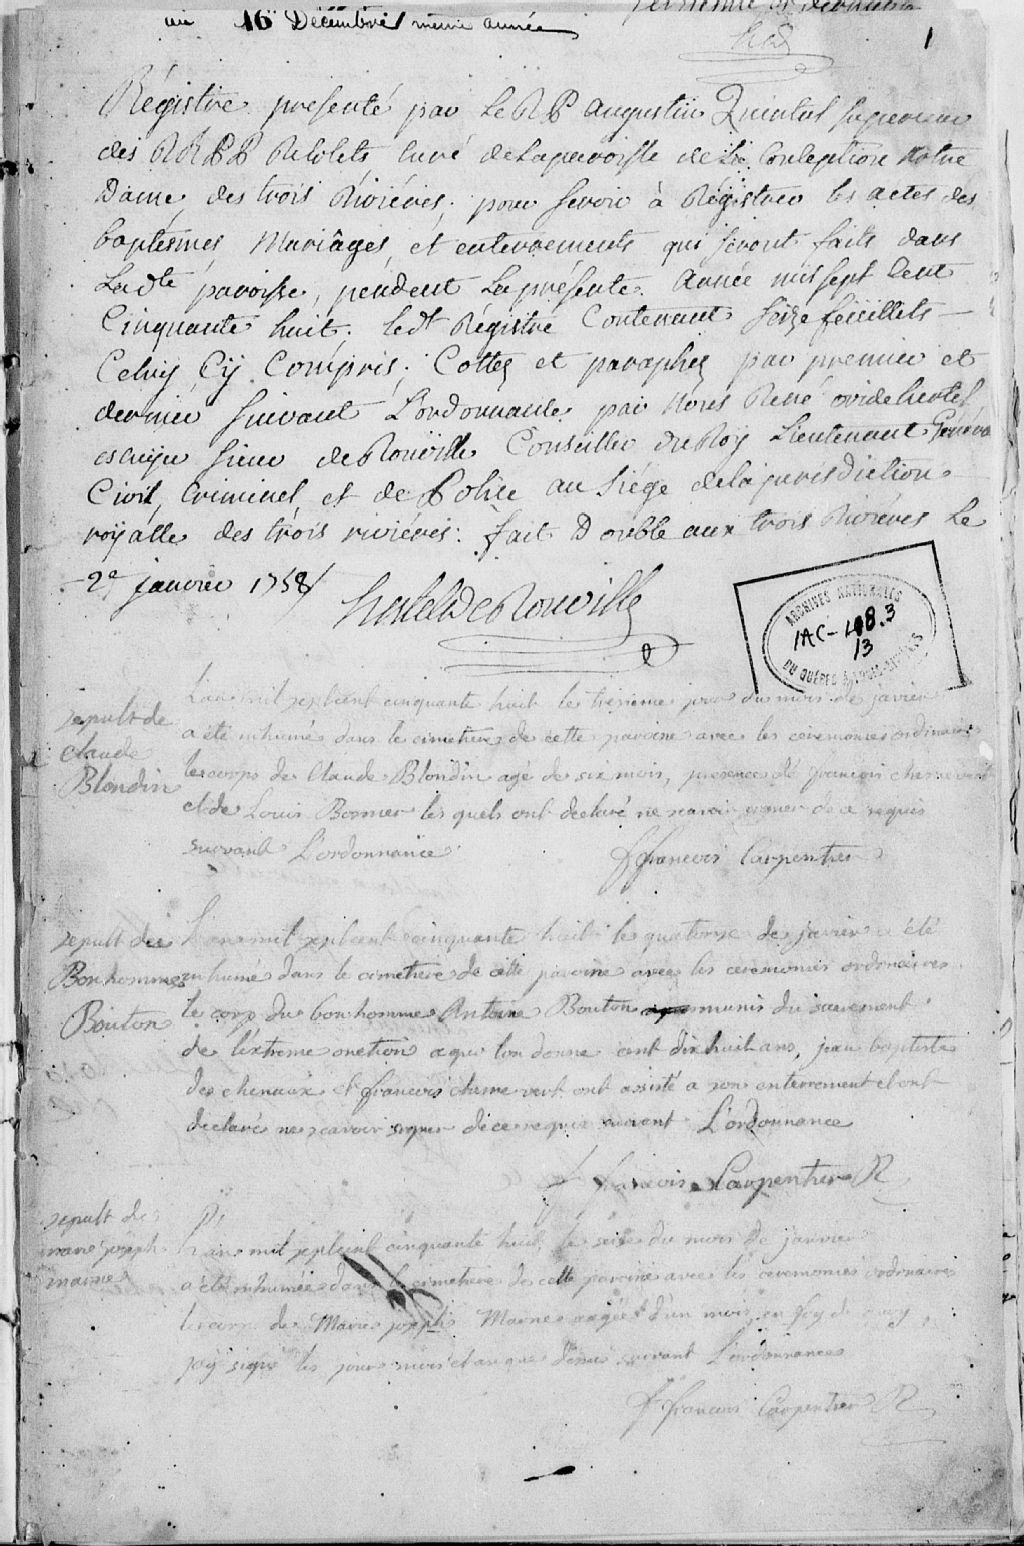 au 16 Decembre même année
premiere et derniere
1
Régistre presenté par Le R P augustin Quintal superieur
des R R P P Recolets curé de La paroisse de La Conception Notre
Dame des trois Riviéres; pour servir à Régistrer les actes des
baptésmes, Mariâges, et enterrements qui seront faits dans
Lad.te paroisse, pendent La présente Année mil sept Cent
Cinquante huit, led.t Régistre Contenant Seize feüillets
Celuy Cy Compris; Cottez et paraphez par premier et
dernier suivant L'ordonnance par Nous René ovide hertel
escuyer sieur de Roüville Conseiller du Roÿ Lieutenant Général
Civil, Criminel et de Police au siége de la jurisdiction
royalle des trois riviéres: fait Double aux trois Riviéres Le
2e janvier 1758/
hertel De Rouville
ARCHIVES NATIONALES
1AC-
13
DU QUÉBEC
sepult de
claude
Blondin
L'an mil septcent cinquante huit le tresieme jour du mois de javier
a été inhumé dans le cimetiere de cette paroisse avec les ceremonies ordinaires
le corps de Claude Blondin agé de six mois, presence de francois chesnevert
et de Louis Bonnier les quels ont declaré ne scavoir signer de ce requis
suivant L'ordonnance
f francois Carpentier
sepult de
Bonhomme
Bouton
L'an mil septcent cinquante huit le quatorse de javier a été
inhumé dans le cimetiere de cette paroisse avec les ceremonies ordinaires
le corp du bonhomme Antoine Bouton munis du sacrement
de l'extreme onction a qui l'on donne cent dix huit ans, jean baptiste
des chenaux et francois chesne vert ont assisté a son enterrement et ont
declaré ne scavoir signer de ce requis suivant L'ordonnance
f francois Carpentier R
sepult de
marie joseph
marne
L'an mil septcent cinquante huit le seise du mois de janvier
a été inhumée dans le cimetiere de cette paroisse avec les ceremonies ordinaires
le corps de Marie joseph Marne agée d'un mois en foy de quoy
j'ay signé les jours mois et an que dessus suivant L'ordonnance
f francois Carpentier R